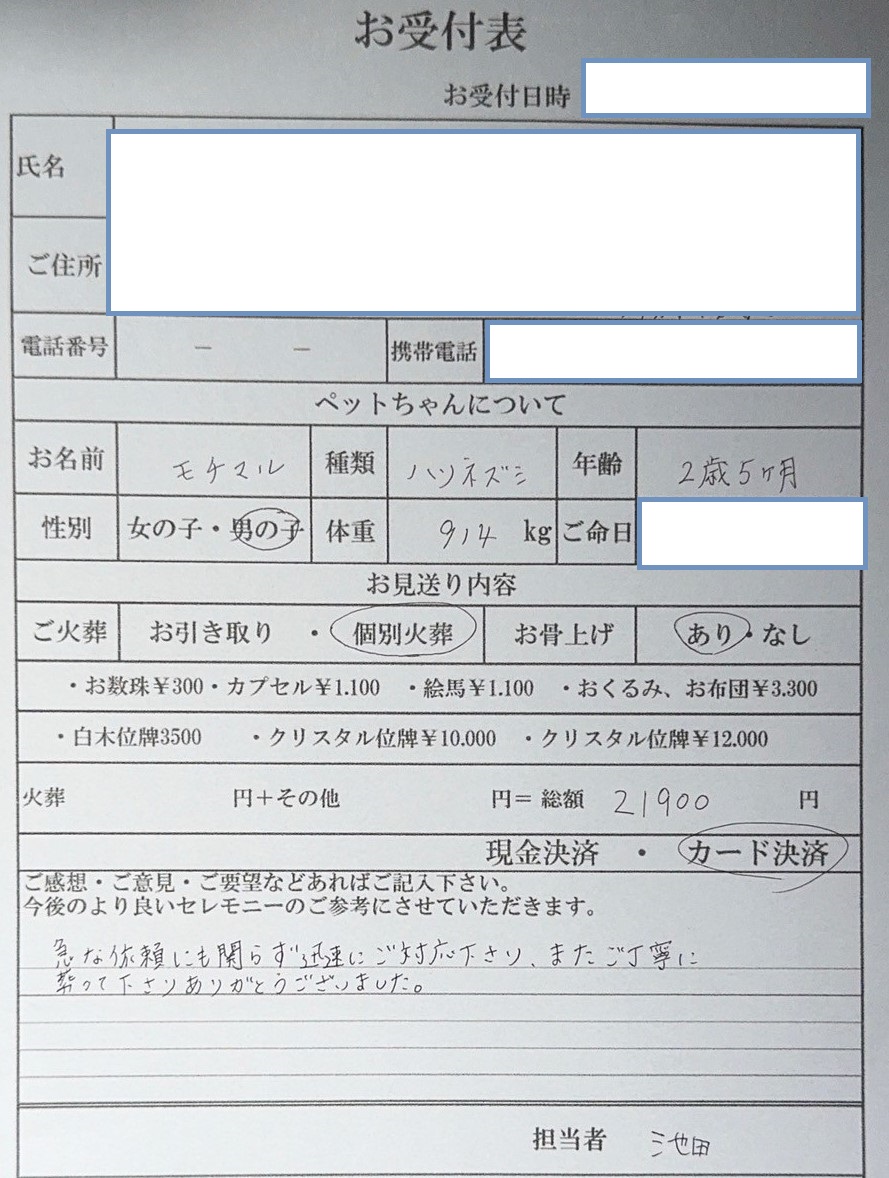 お受付表
お受付日時
氏名
ご住所
電話番号 － － 携帯電話
ペットちゃんについて
お名前 モチマル 種類 ハリネズミ 年齢 2歳5ヶ月
性別 女の子・男の子 体重 914 kg ご命日
お見送り内容
ご火葬 お引き取り ・ 個別火葬 お骨上げ あり・なし
・お数珠¥300・カプセル¥1.100 ・絵馬¥1.100 ・おくるみ、お布団¥3.300
・白木位牌3500 ・クリスタル位牌¥10.000 ・クリスタル位牌¥12.000
火葬 円＋その他 円＝ 総額 21900 円
現金決済 ・ カード決済
ご感想・ご意見・ご要望などあればご記入下さい。
今後のより良いセレモニーのご参考にさせていただきます。
急な依頼にも関らず迅速にご対応下さり、またご丁寧に
葬って下さりありがとうございました。
担当者 池田